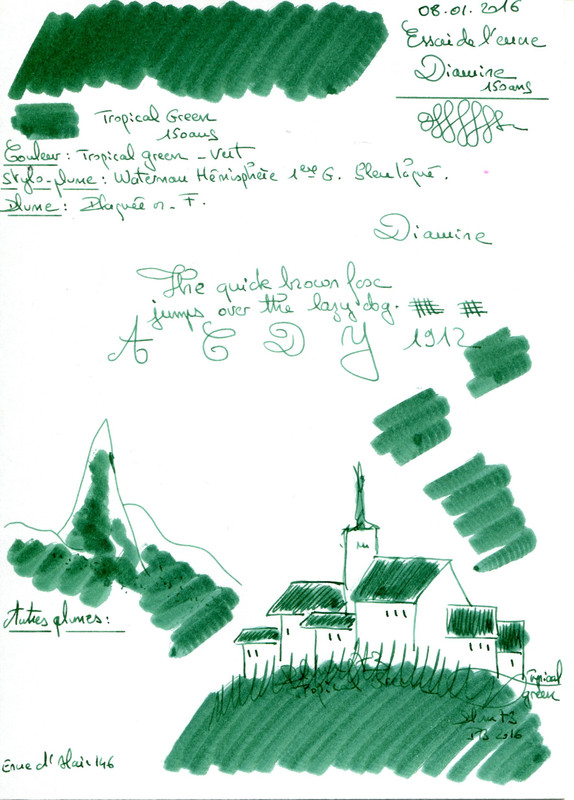 08.01.2016
Essai de l'encre
Diamine
150ans
Tropical Green
150ans
Couleur : Tropical green - Vert
Stylo-plume : Waterman Hémisphère 1ère G. Bleu laqué.
Plume : Plaquée or - F.
Diamine
The quick brown fox
jumps over the lazy dog.
A C D Y 1912
Autres plumes :
Tropical
Tropical
green
2016
Encre d'Alain 146